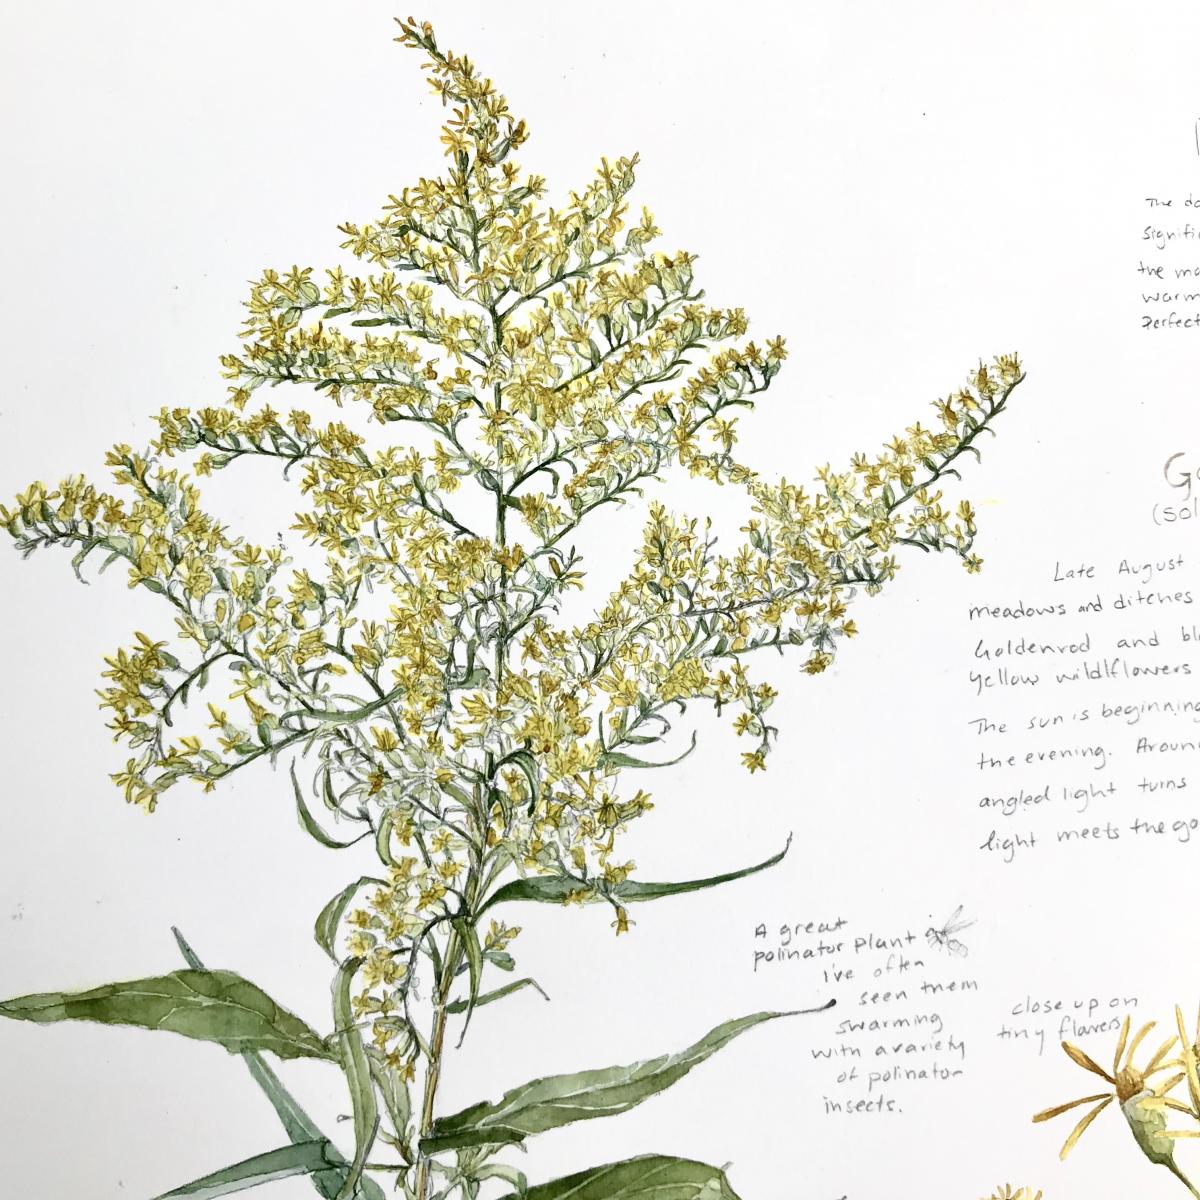 The
signifi
the mo
warm
Perfect
G
(Sol
Late August
meadows and ditches
Goldenrod and bl
yellow wildlflowers
The sun is beginning
the evening. Aroun
angled light turns
light meets the go
A great
polinator plant
I've often
seen them
swarming
with a variety
of polinator
insects.
close up on
tiny flowers